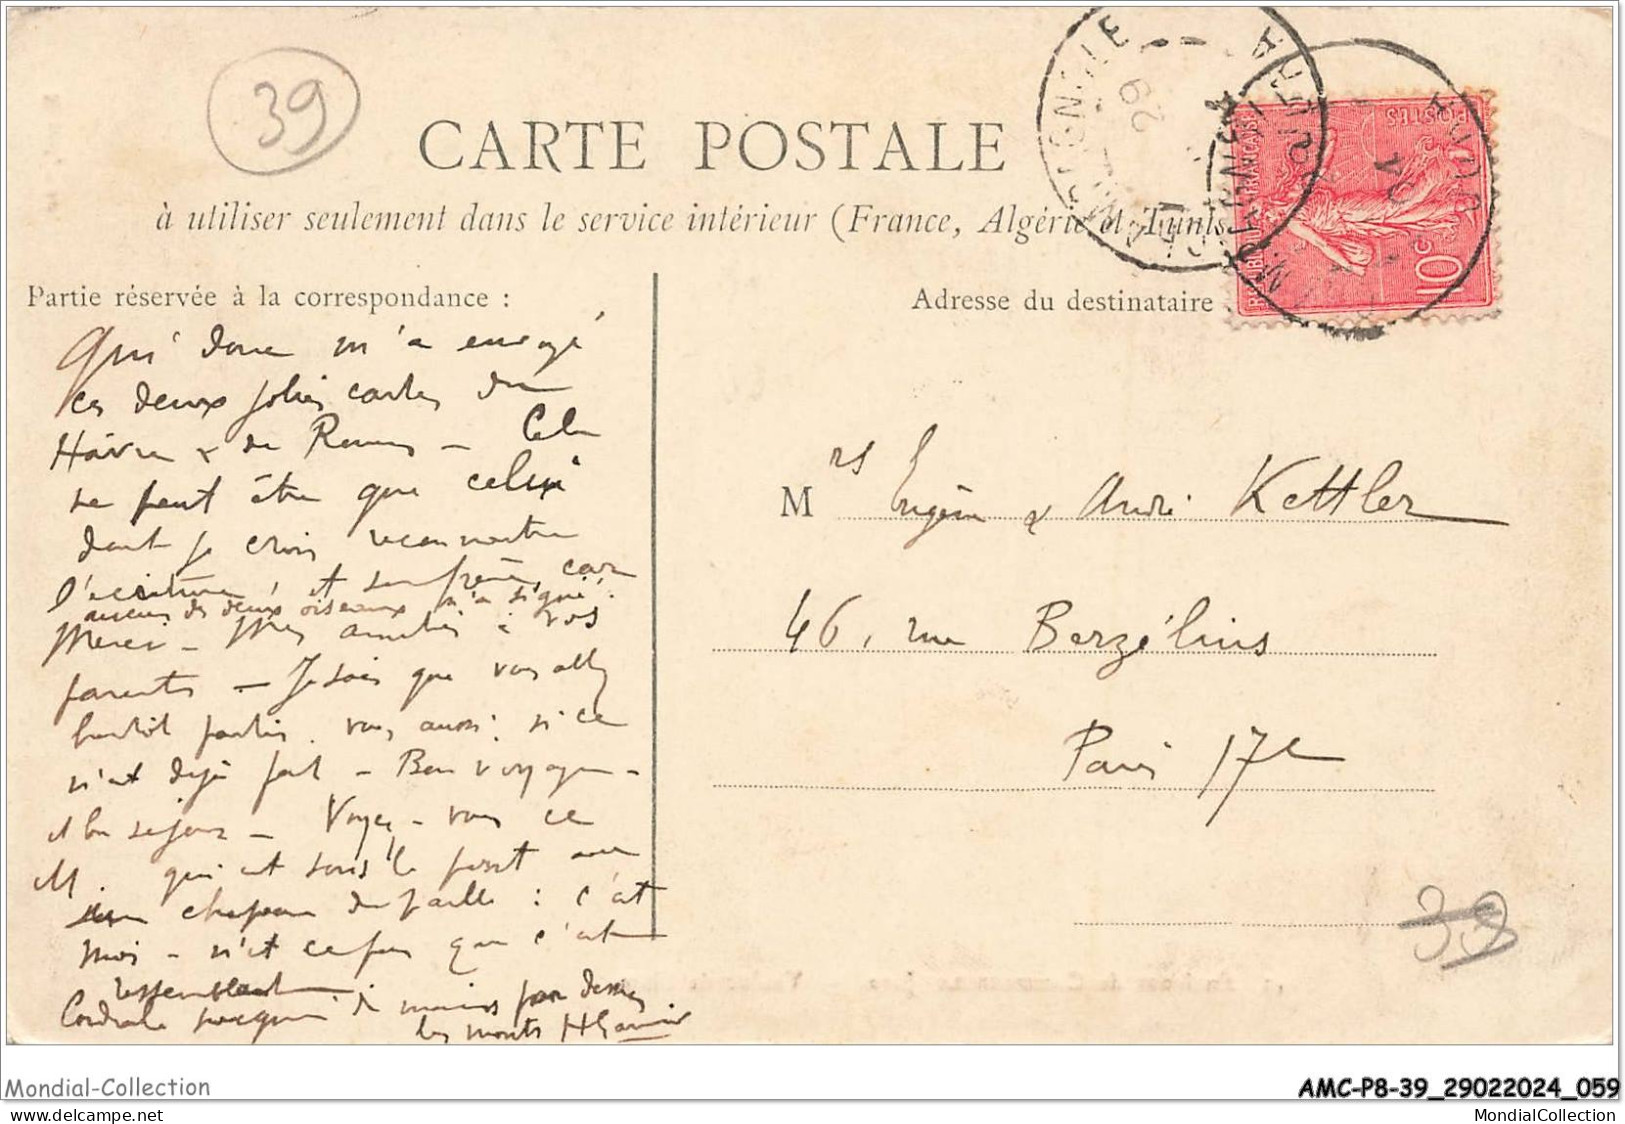 39
CARTE POSTALE
à utiliser seulement dans le service intérieur (France, Algérie et Tunis
Partie réservée à la correspondance :
Adresse du destinataire
RÉPUBLIQUE FRANÇAISE
POSTES
10c
JURA
Qui donc m'a envoyé
ces deux jolies cartes du
Hâvre & de Rouen — Cela
ne peut être que celui
dont je crois reconnaitre
l'écriture, et son frère, car
aucun des deux oiseaux n'a signé.
Merci — Mes amitiés à vos
parents — Je sais que vous allez
bientôt partir, vous aussi, si ce
n'est déjà fait — Bon voyage —
et bon séjour — Voyez-vous ce
M. qui est sous le pont avec
un chapeau de paille : c'est
moi — n'est ce pas que c'est
ressemblant
Cordiale poignée de mains par dessus
les monts
Mrs Eugène & André Kettler
46, rue Berzélius
Paris 17e
39
Mondial-Collection
AMC-P8-39_29022024_059
MondialCollection
MondialCollection